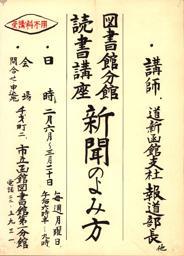 受講料不用
図書館分館
読書講座
新聞のよみ方
・講師 道新函館支社 報道部長 他
・日時 二月六日〜三月二十日
毎週月曜日
午后六時半〜九時
・会場 千才町二 市立函館図書館第一分館
問合せ申込
電話